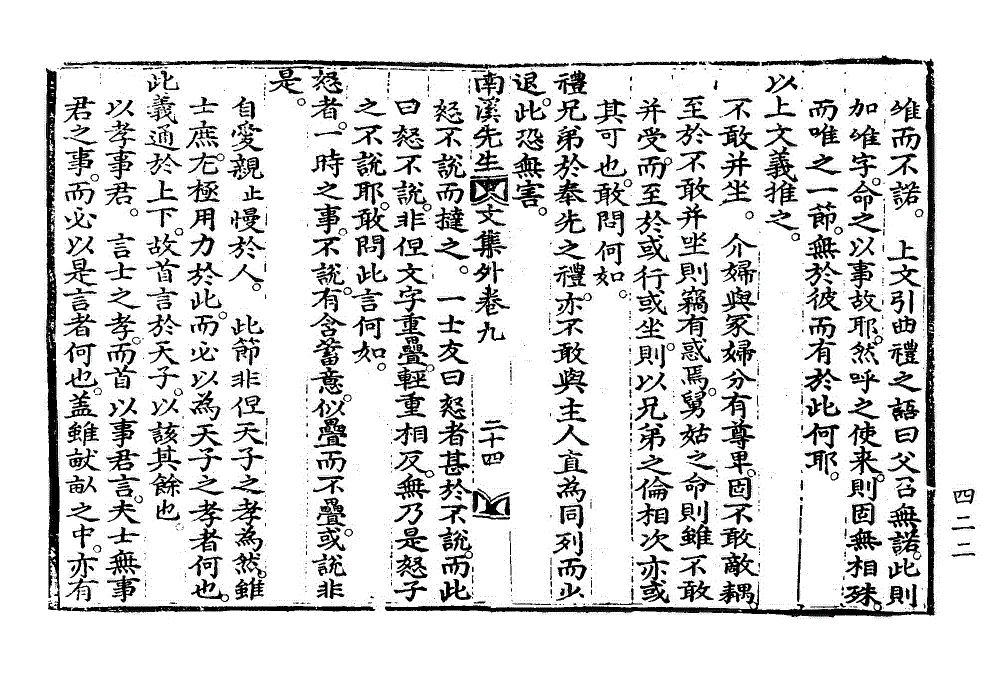 唯而不諾。 上文引曲禮之語曰父召無諾。此則
加唯字。命之以事故耶。然呼之使來。則固無相殊。
而唯之一節。無於彼而有於此何耶。
以上文義推之。
不敢并坐。 介婦與冢婦分有尊卑。固不敢敵耦。
至於不敢并坐則竊有惑焉。舅姑之命則雖不敢
并受。而至於或行或坐。則以兄弟之倫相次亦或
其可也。敢問何如。
禮兄弟於奉先之禮。亦不敢與主人直為同列而少
退。此恐無害。
南溪先生文集外卷九 二十四
怒不說而撻之。 一士友曰怒者甚於不說。而此
曰怒不說。非但文字重疊。輕重相反。無乃是怒子
之不說耶。敢問此言何如。
怒者。一時之事。不說。有含蓄意。似疊而不疊。或說非
是。
自愛親止慢於人。 此節非但天子之孝為然。雖
士庶。尤極用力於此。而必以為天子之孝者何也。
此義通於上下。故首言於天子。以該其餘也。
以孝事君。 言士之孝。而首以事君言。夫士無事
君之事。而必以是言者何也。盖雖畎畝之中。亦有
四二二